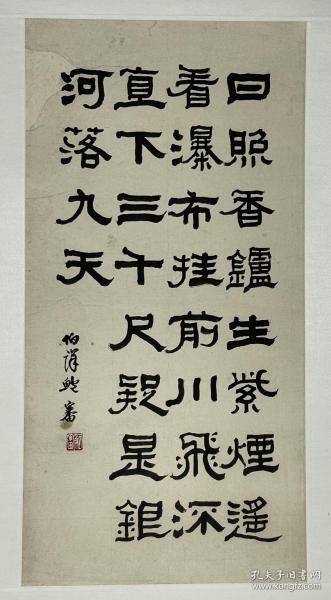 日照香鑪生紫煙遙
看瀑布挂前川飛流
直下三千尺疑是銀
河落九天
孔夫子旧书网
kongfz.com